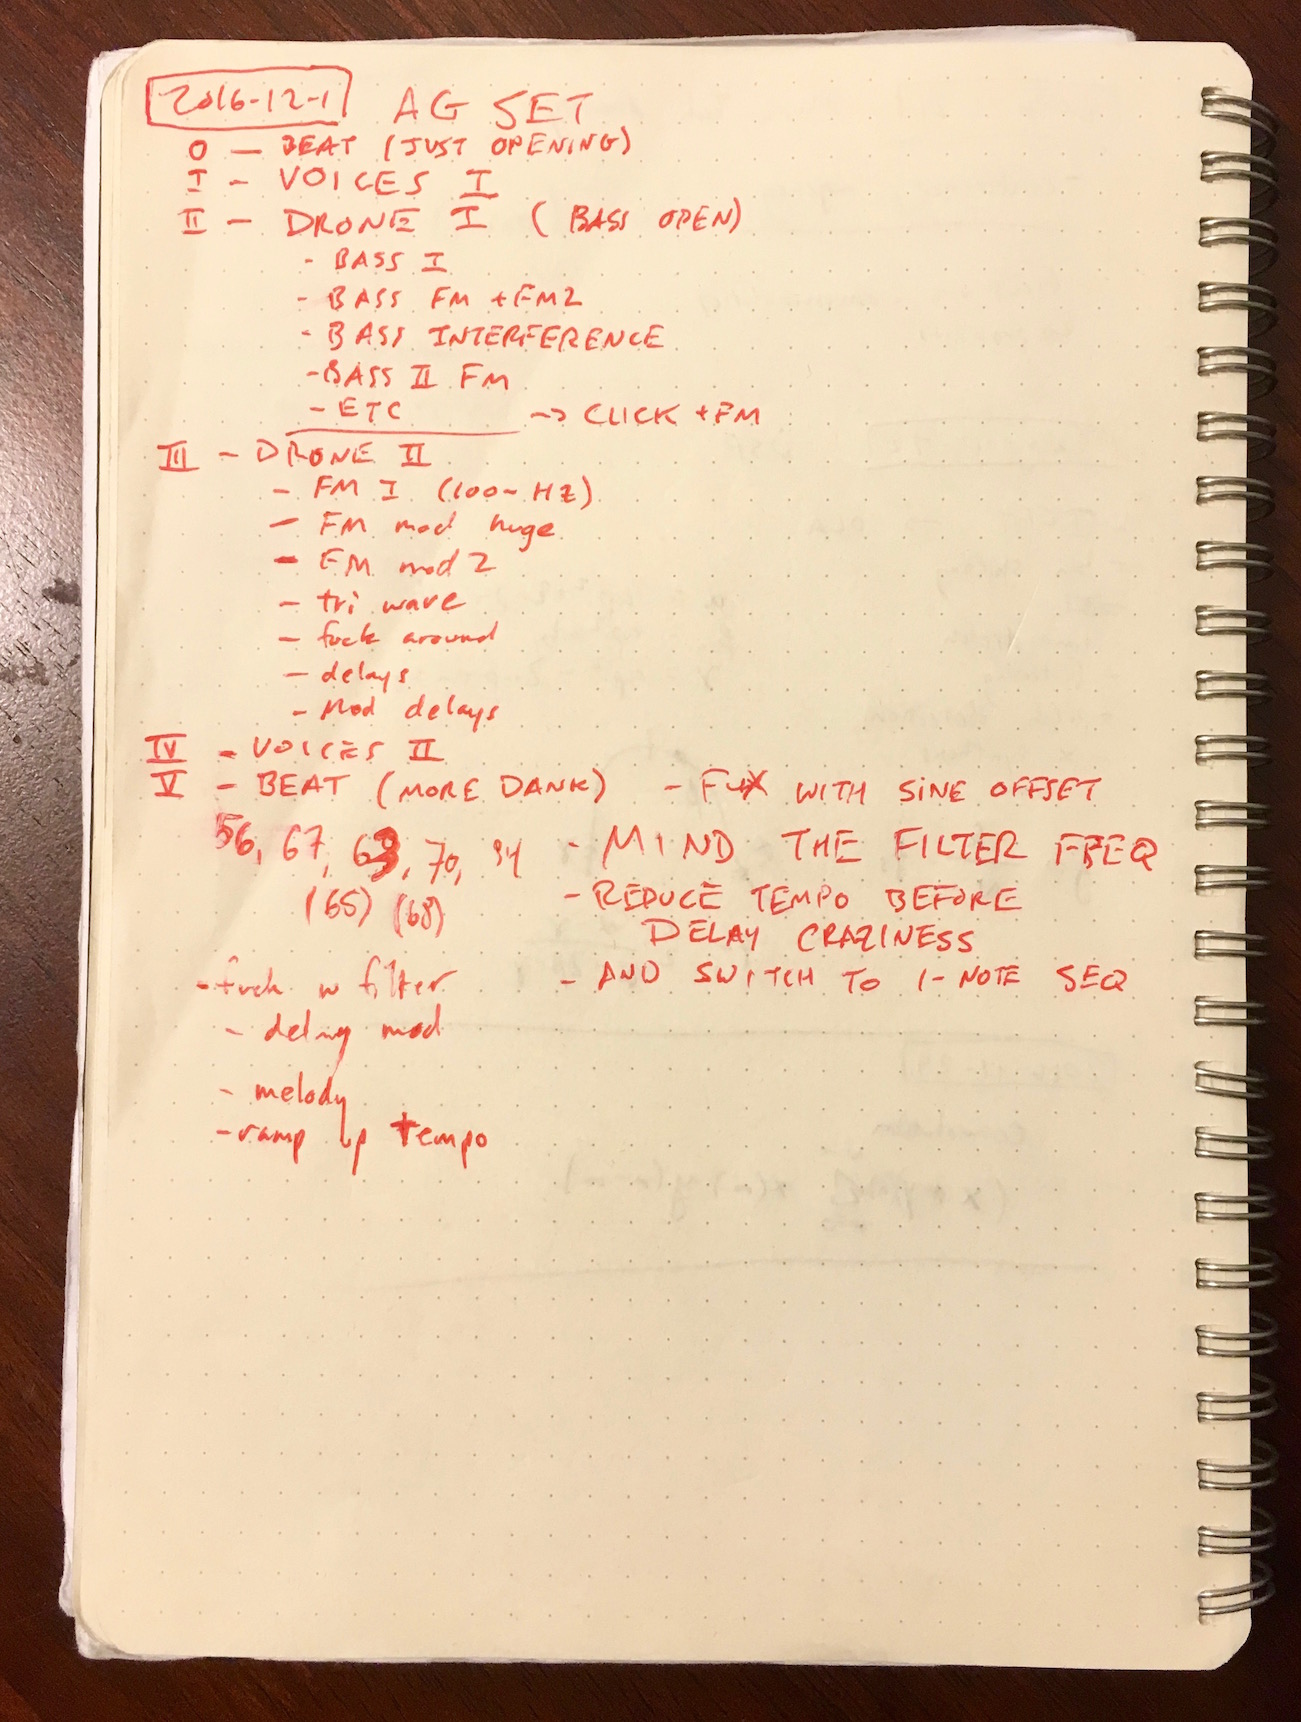 2016-12-1 AG SET
0 — BEAT (JUST OPENING)
I - VOICES I
II - DRONE I (BASS OPEN)
- BASS I
- BASS FM + FM2
- BASS INTERFERENCE
- BASS II FM
- ETC → CLICK + FM
III - DRONE II
- FM I (100~ HZ)
- FM mod huge
- FM mod 2
- tri wave
- fuck around
- delays
- Mod delays
IV - VOICES II
V - BEAT (MORE DANK) - FUX WITH SINE OFFSET
56, 67, 69, 70, 94 - MIND THE FILTER FREQ
(65) (68) - REDUCE TEMPO BEFORE
DELAY CRAZINESS
- fuck w filter - AND SWITCH TO 1-NOTE SEQ
- delay mod
- melody
- ramp up tempo